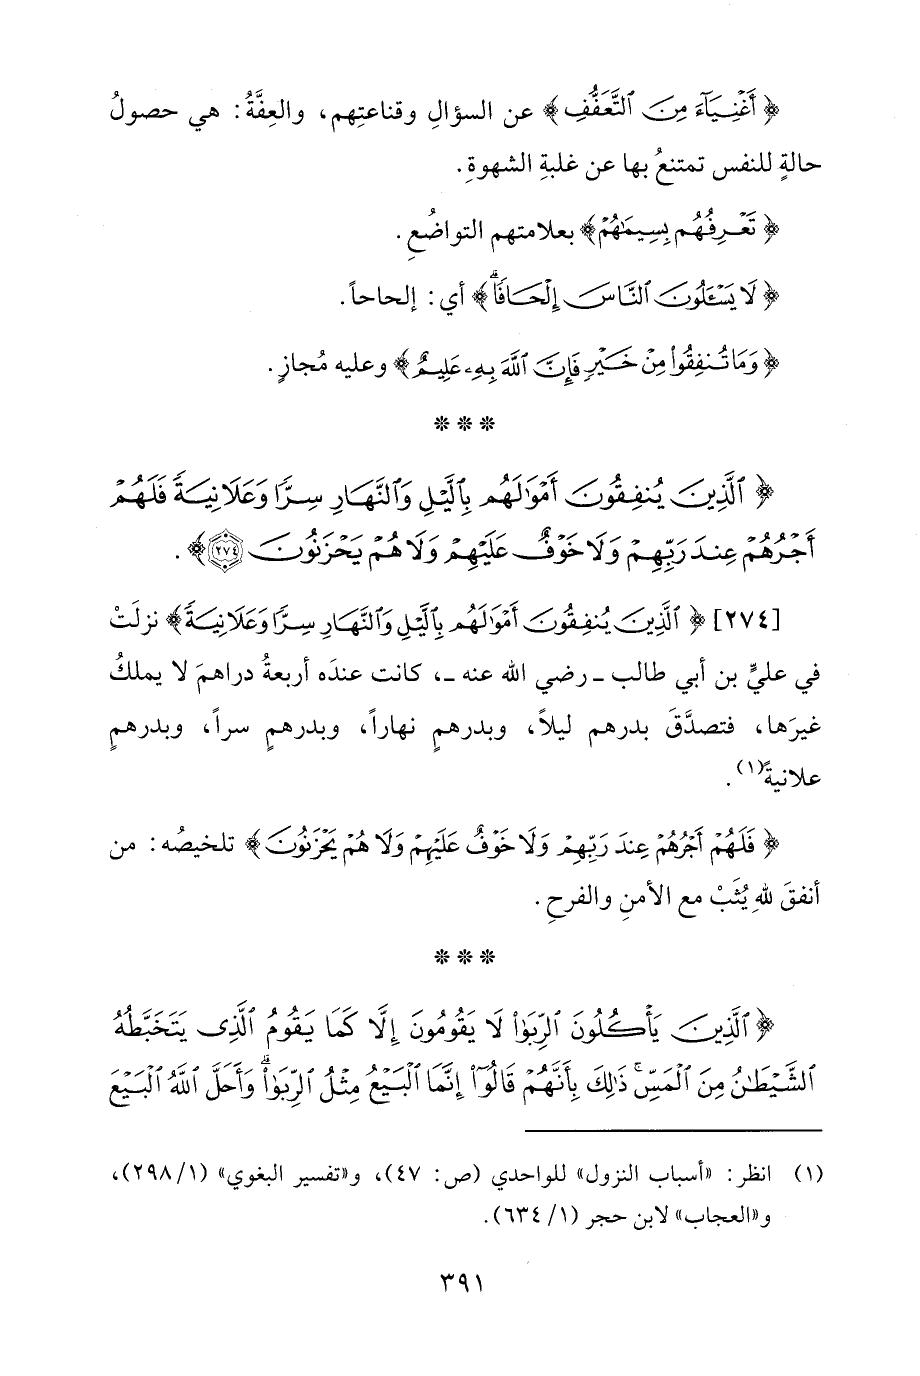 ﴿أَغْنِيَآءَ مِنَ ٱلتَّعَفُّفِ﴾ عن السؤالِ وقناعتِهم، والعِفَّةُ: هي حصولُ
حالةٍ للنفس تمتنعُ بها عن غلبةِ الشهوةِ.
﴿تَعْرِفُهُم بِسِيمَٰهُمْ﴾ بعلامتهم التواضُعِ.
﴿لَا يَسْـَٔلُونَ ٱلنَّاسَ إِلْحَافًا ۗ﴾ أي: إلحاحاً.
﴿وَمَا تُنفِقُوا۟ مِنْ خَيْرٍ فَإِنَّ ٱللَّهَ بِهِۦ عَلِيمٌ﴾ وعليه مُجازٍ.
* * *
﴿ٱلَّذِينَ يُنفِقُونَ أَمْوَٰلَهُم بِٱلَّيْلِ وَٱلنَّهَارِ سِرًّا وَعَلَانِيَةً فَلَهُمْ
أَجْرُهُمْ عِندَ رَبِّهِمْ وَلَا خَوْفٌ عَلَيْهِمْ وَلَا هُمْ يَحْزَنُونَ ﴿٢٧٤﴾﴾.
[٢٧٤] ﴿ٱلَّذِينَ يُنفِقُونَ أَمْوَٰلَهُم بِٱلَّيْلِ وَٱلنَّهَارِ سِرًّا وَعَلَانِيَةً﴾ نزلَتْ
في عليِّ بن أبي طالب ـ رضي الله عنه ـ، كانت عندَه أربعةُ دراهمَ لا يملكُ
غيرَها، فتصدَّقَ بدرهم ليلاً، وبدرهمٍ نهاراً، وبدرهمٍ سراً، وبدرهمٍ
علانيةً(١).
﴿فَلَهُمْ أَجْرُهُمْ عِندَ رَبِّهِمْ وَلَا خَوْفٌ عَلَيْهِمْ وَلَا هُمْ يَحْزَنُونَ﴾ تلخيصُه: من
أنفقَ للهِ يُثَبْ مع الأمنِ والفرحِ.
* * *
﴿ٱلَّذِينَ يَأْكُلُونَ ٱلرِّبَوٰا۟ لَا يَقُومُونَ إِلَّا كَمَا يَقُومُ ٱلَّذِى يَتَخَبَّطُهُ
ٱلشَّيْطَٰنُ مِنَ ٱلْمَسِّ ۚ ذَٰلِكَ بِأَنَّهُمْ قَالُوٓا۟ إِنَّمَا ٱلْبَيْعُ مِثْلُ ٱلرِّبَوٰا۟ ۗ وَأَحَلَّ ٱللَّهُ ٱلْبَيْعَ
(١) انظر: «أسباب النزول» للواحدي (ص: ٤٧)، و«تفسير البغوي» (١/ ٢٩٨)،
و«العجاب» لابن حجر (١/ ٦٣٤).
٣٩١